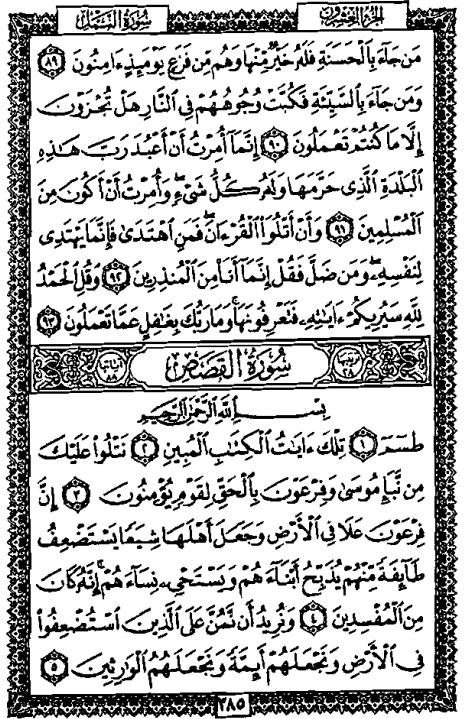 الجزء العشرون سورة النمل
مَن جَآءَ بِٱلْحَسَنَةِ فَلَهُۥ خَيْرٌ مِّنْهَا وَهُم مِّن فَزَعٍ يَوْمَئِذٍ ءَامِنُونَ ٨٩
وَمَن جَآءَ بِٱلسَّيِّئَةِ فَكُبَّتْ وُجُوهُهُمْ فِى ٱلنَّارِ هَلْ تُجْزَوْنَ
إِلَّا مَا كُنتُمْ تَعْمَلُونَ ٩٠ إِنَّمَآ أُمِرْتُ أَنْ أَعْبُدَ رَبَّ هَٰذِهِ
ٱلْبَلْدَةِ ٱلَّذِى حَرَّمَهَا وَلَهُۥ كُلُّ شَىْءٍ وَأُمِرْتُ أَنْ أَكُونَ مِنَ
ٱلْمُسْلِمِينَ ٩١ وَأَنْ أَتْلُوَا۟ ٱلْقُرْءَانَ فَمَنِ ٱهْتَدَىٰ فَإِنَّمَا يَهْتَدِى
لِنَفْسِهِۦ وَمَن ضَلَّ فَقُلْ إِنَّمَآ أَنَا۠ مِنَ ٱلْمُنذِرِينَ ٩٢ وَقُلِ ٱلْحَمْدُ
لِلَّهِ سَيُرِيكُمْ ءَايَٰتِهِۦ فَتَعْرِفُونَهَا وَمَا رَبُّكَ بِغَٰفِلٍ عَمَّا تَعْمَلُونَ ٩٣
ترتيبها ٢٨ سُورَةُ القَصَصِ آياتها ٨٨
بِسْمِ ٱللَّهِ ٱلرَّحْمَٰنِ ٱلرَّحِيمِ
طسٓمٓ ١ تِلْكَ ءَايَٰتُ ٱلْكِتَٰبِ ٱلْمُبِينِ ٢ نَتْلُوا۟ عَلَيْكَ
مِن نَّبَإِ مُوسَىٰ وَفِرْعَوْنَ بِٱلْحَقِّ لِقَوْمٍ يُؤْمِنُونَ ٣ إِنَّ
فِرْعَوْنَ عَلَا فِى ٱلْأَرْضِ وَجَعَلَ أَهْلَهَا شِيَعًا يَسْتَضْعِفُ
طَآئِفَةً مِّنْهُمْ يُذَبِّحُ أَبْنَآءَهُمْ وَيَسْتَحْىِۦ نِسَآءَهُمْ إِنَّهُۥ كَانَ
مِنَ ٱلْمُفْسِدِينَ ٤ وَنُرِيدُ أَن نَّمُنَّ عَلَى ٱلَّذِينَ ٱسْتُضْعِفُوا۟
فِى ٱلْأَرْضِ وَنَجْعَلَهُمْ أَئِمَّةً وَنَجْعَلَهُمُ ٱلْوَٰرِثِينَ ٥
٣٨٥